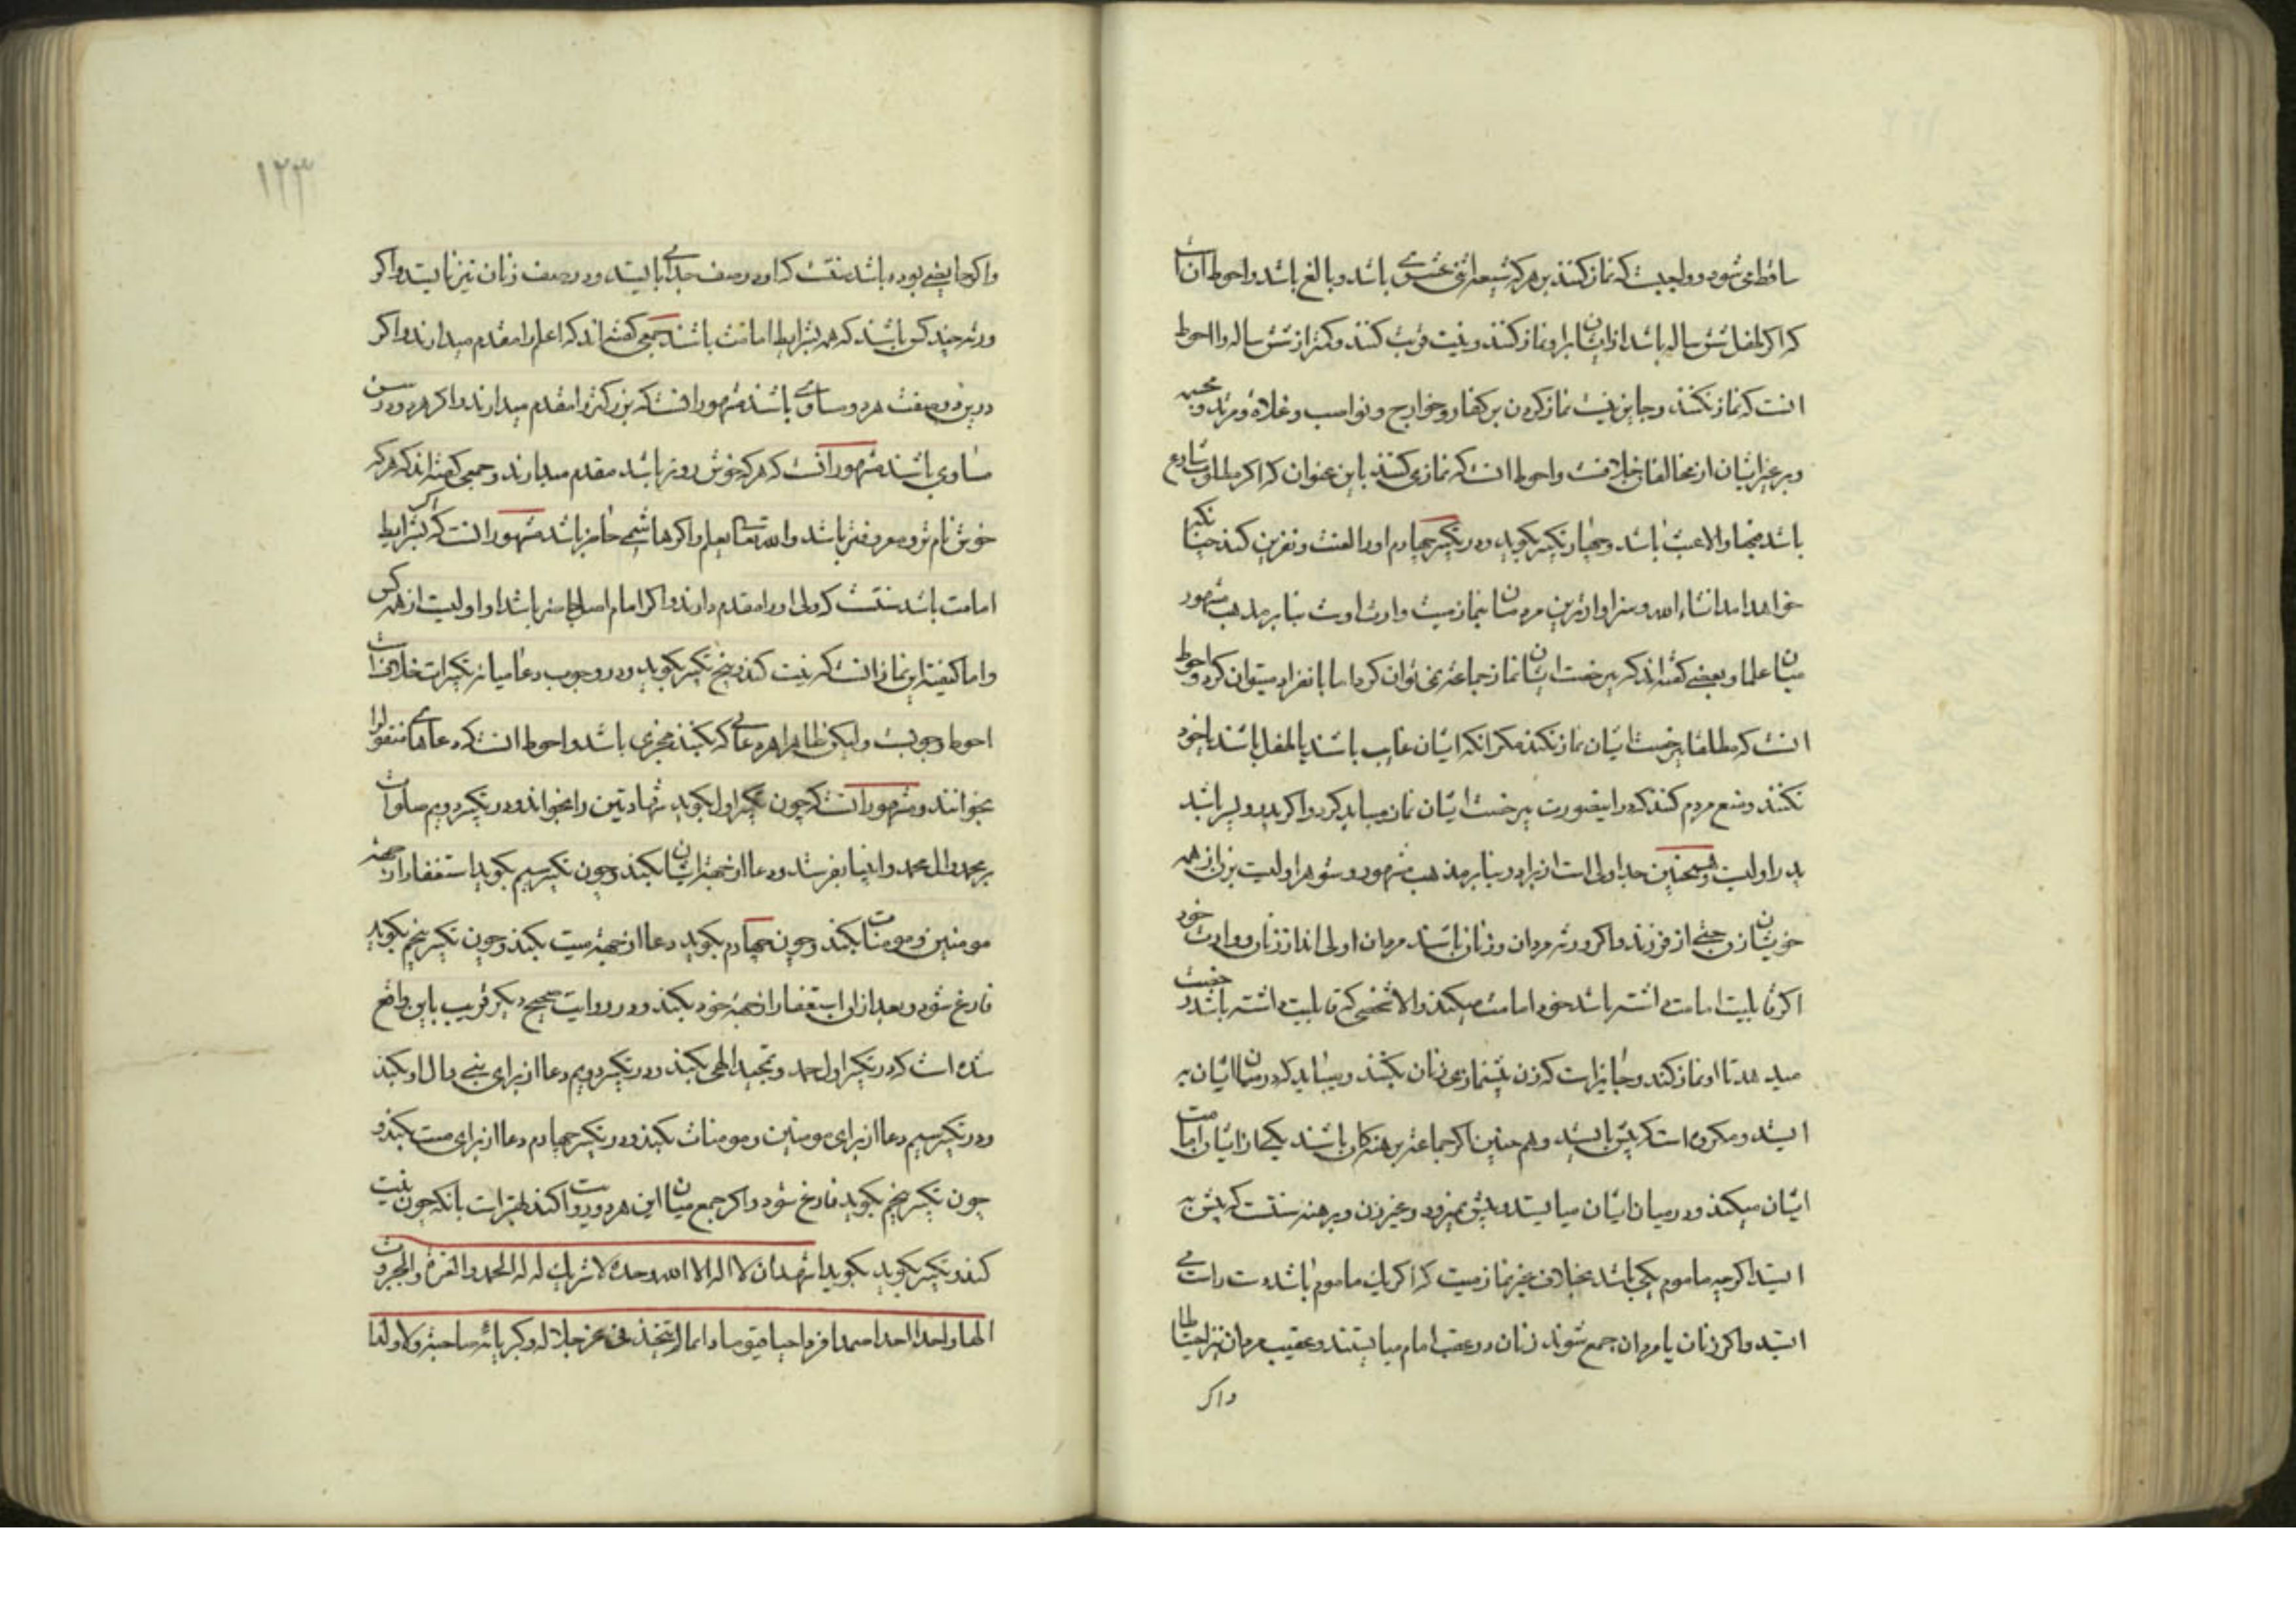 ساقط می شود و واجبست که نماز کنند بر هر که شیعه اثنی عشری باشد و بالغ باشد و احوط آن است
که اگر طفل شش ساله باشد از ایشان بر او نماز کنند و نیت قربت کنند و کمتر از شش ساله را احوط
انست که نماز نکنند و جایز نیست نماز کردن بر کفار و خوارج و نواصب و غلاة و مرتد و مجسمه
و بر غیر ایشان از مخالفان خلافست و احوط انست که نمازی کنند باین عنوان که اگر مطلوب شارع
باشد فبها والا عبث باشد و چهار تکبیر بکوید و در تکبیر چهارم او را لعنت و نفرین کند چنانکه
خواهد امد انشاء الله و سزاوارترین مردمان بنماز میت وارث اوست بنا بر مذهب مشهور
میان علما و بعضی کفته اند که بی رخصت ایشان نماز جماعت نمی توان کرد اما با نفراد میتوان کرد و احوط
انست که مطلقا بی رخصت ایشان نماز نکنند مکر انکه ایشان غایب باشند یا طفل باشند یا خود
نکنند و منع مردم کنند که در اینصورت بی رخصت ایشان نماز میباید کرد و اکر پدر و پسر باشد
پدر اولیست و همچنین جد اولی است از برادر بنا بر مذهب مشهور و شوهر اولیست بزن از همه
خویشان زن حتی از فرزند و اکر ورثه مردان و زنان باشند مردان اولی اند از زنان و وارث خود
اکر قابلیت امامت داشته باشد خود امامت میکند والا شخصی که قابلیت داشته باشد رخصت
میدهد تا او نماز کند و جایز است که زن پیشنمازی زنان بکند و میباید که در میان ایشان به
ایستد و مکروه است که پیش بایستد و هم چنین اکر جماعتی برهنکان باشند یکی از ایشان امامت
ایشان میکند و در میان ایشان میایستد و پیش نمیرود و غیر زن و برهنه سنتست که پیش به
ایستد اکر چه ماموم یکی باشد بخلاف غیر نماز میت که اکر یک ماموم باشد دست راست می
ایستد و اکر زنان با مردان جمع شوند زنان در عقب امام میایستند و عقیب مردان نیز احتیاطا
واکر
۱۲۳
واکر حایضی بوده باشد سنتست که او در صف جدائی بایستد و در صف زنان نیز نایستد و اکر
ورثه چند کس باشند که همه بشرایط امامت باشند جمعی کفته اند که اعلم را مقدم میدارند و اکر
درین دو صفت هر دو مساوی باشند مشهور انست که بزرکتر را مقدم میدارند و اکر هر دو در سن
مساوی باشند مشهور انست که هر که خوش روتر باشد مقدم میدارند و جمعی کفته اند که هر که
خوش نام تر و معروفتر باشد والله تعالی یعلم و اکر هاشمی حاضر باشد مشهور انست که اکر بشرایط
امامت باشد سنتست که ولی او را مقدم دارند و اکر امام اصل حاضر باشد او اولیست از همه کس
و اما کیفیت این نماز انست که نیت کند و پنج تکبیر بکوید و در وجوب دعا میانه تکبیرات خلافست
احوط وجوبست و لیکن ظاهرا هر دعائی که بکنند مجزی باشد و احوط انست که دعاهای منقول را
بخوانند و مشهور انست که چون تکبیر اول بکوید شهادتین را بخواند و در تکبیر دویم صلوات
بر محمد و ال محمد و انبیا بفرستد و دعا از جهة ایشان بکند و چون تکبیر سیم بکوید استغفار از جهة
مومنین و مومنات بکند و چون چهارم بکوید دعا از جهة میت بکند و چون تکبیر پنجم بکوید
فارغ شود و بعد از ان استغفار از جهة خود بکند و در روایت صحیح دیکر قریب باین واقع
شده است که در تکبیر اول حمد و تمجید الهی بکند و در تکبیر دویم دعا از برای نبی و ال او بکند
و در تکبیر سیم دعا از برای مومنین و مومنات بکند و در تکبیر چهارم دعا از برای میت بکند و
چون تکبیر پنجم بکوید فارغ شود و اکر جمع میان این هر دو روایت کند بهتر است بانکه چون نیت
کند و تکبیر بکوید بکوید اشهد ان لا اله الا الله وحده لا شریک له له الحمد والعزة والجبروت
الها واحدا احدا صمدا فردا حیا قیوما دائما لم یتخذ فی عز جلاله وکبریائه صاحبة ولا ولدا